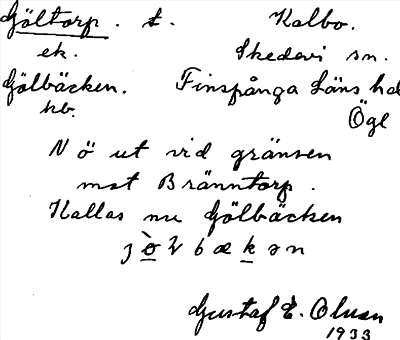 Göltorp. t. Kalbo.
ek. Skedevi sn.
Gölbäcken. Finspånga Läns hd
hb. Ögl
N ö ut vid gränsen
mot Bränntorp.
Kallas nu Gölbäcken
Gustaf E. Olsson
1933